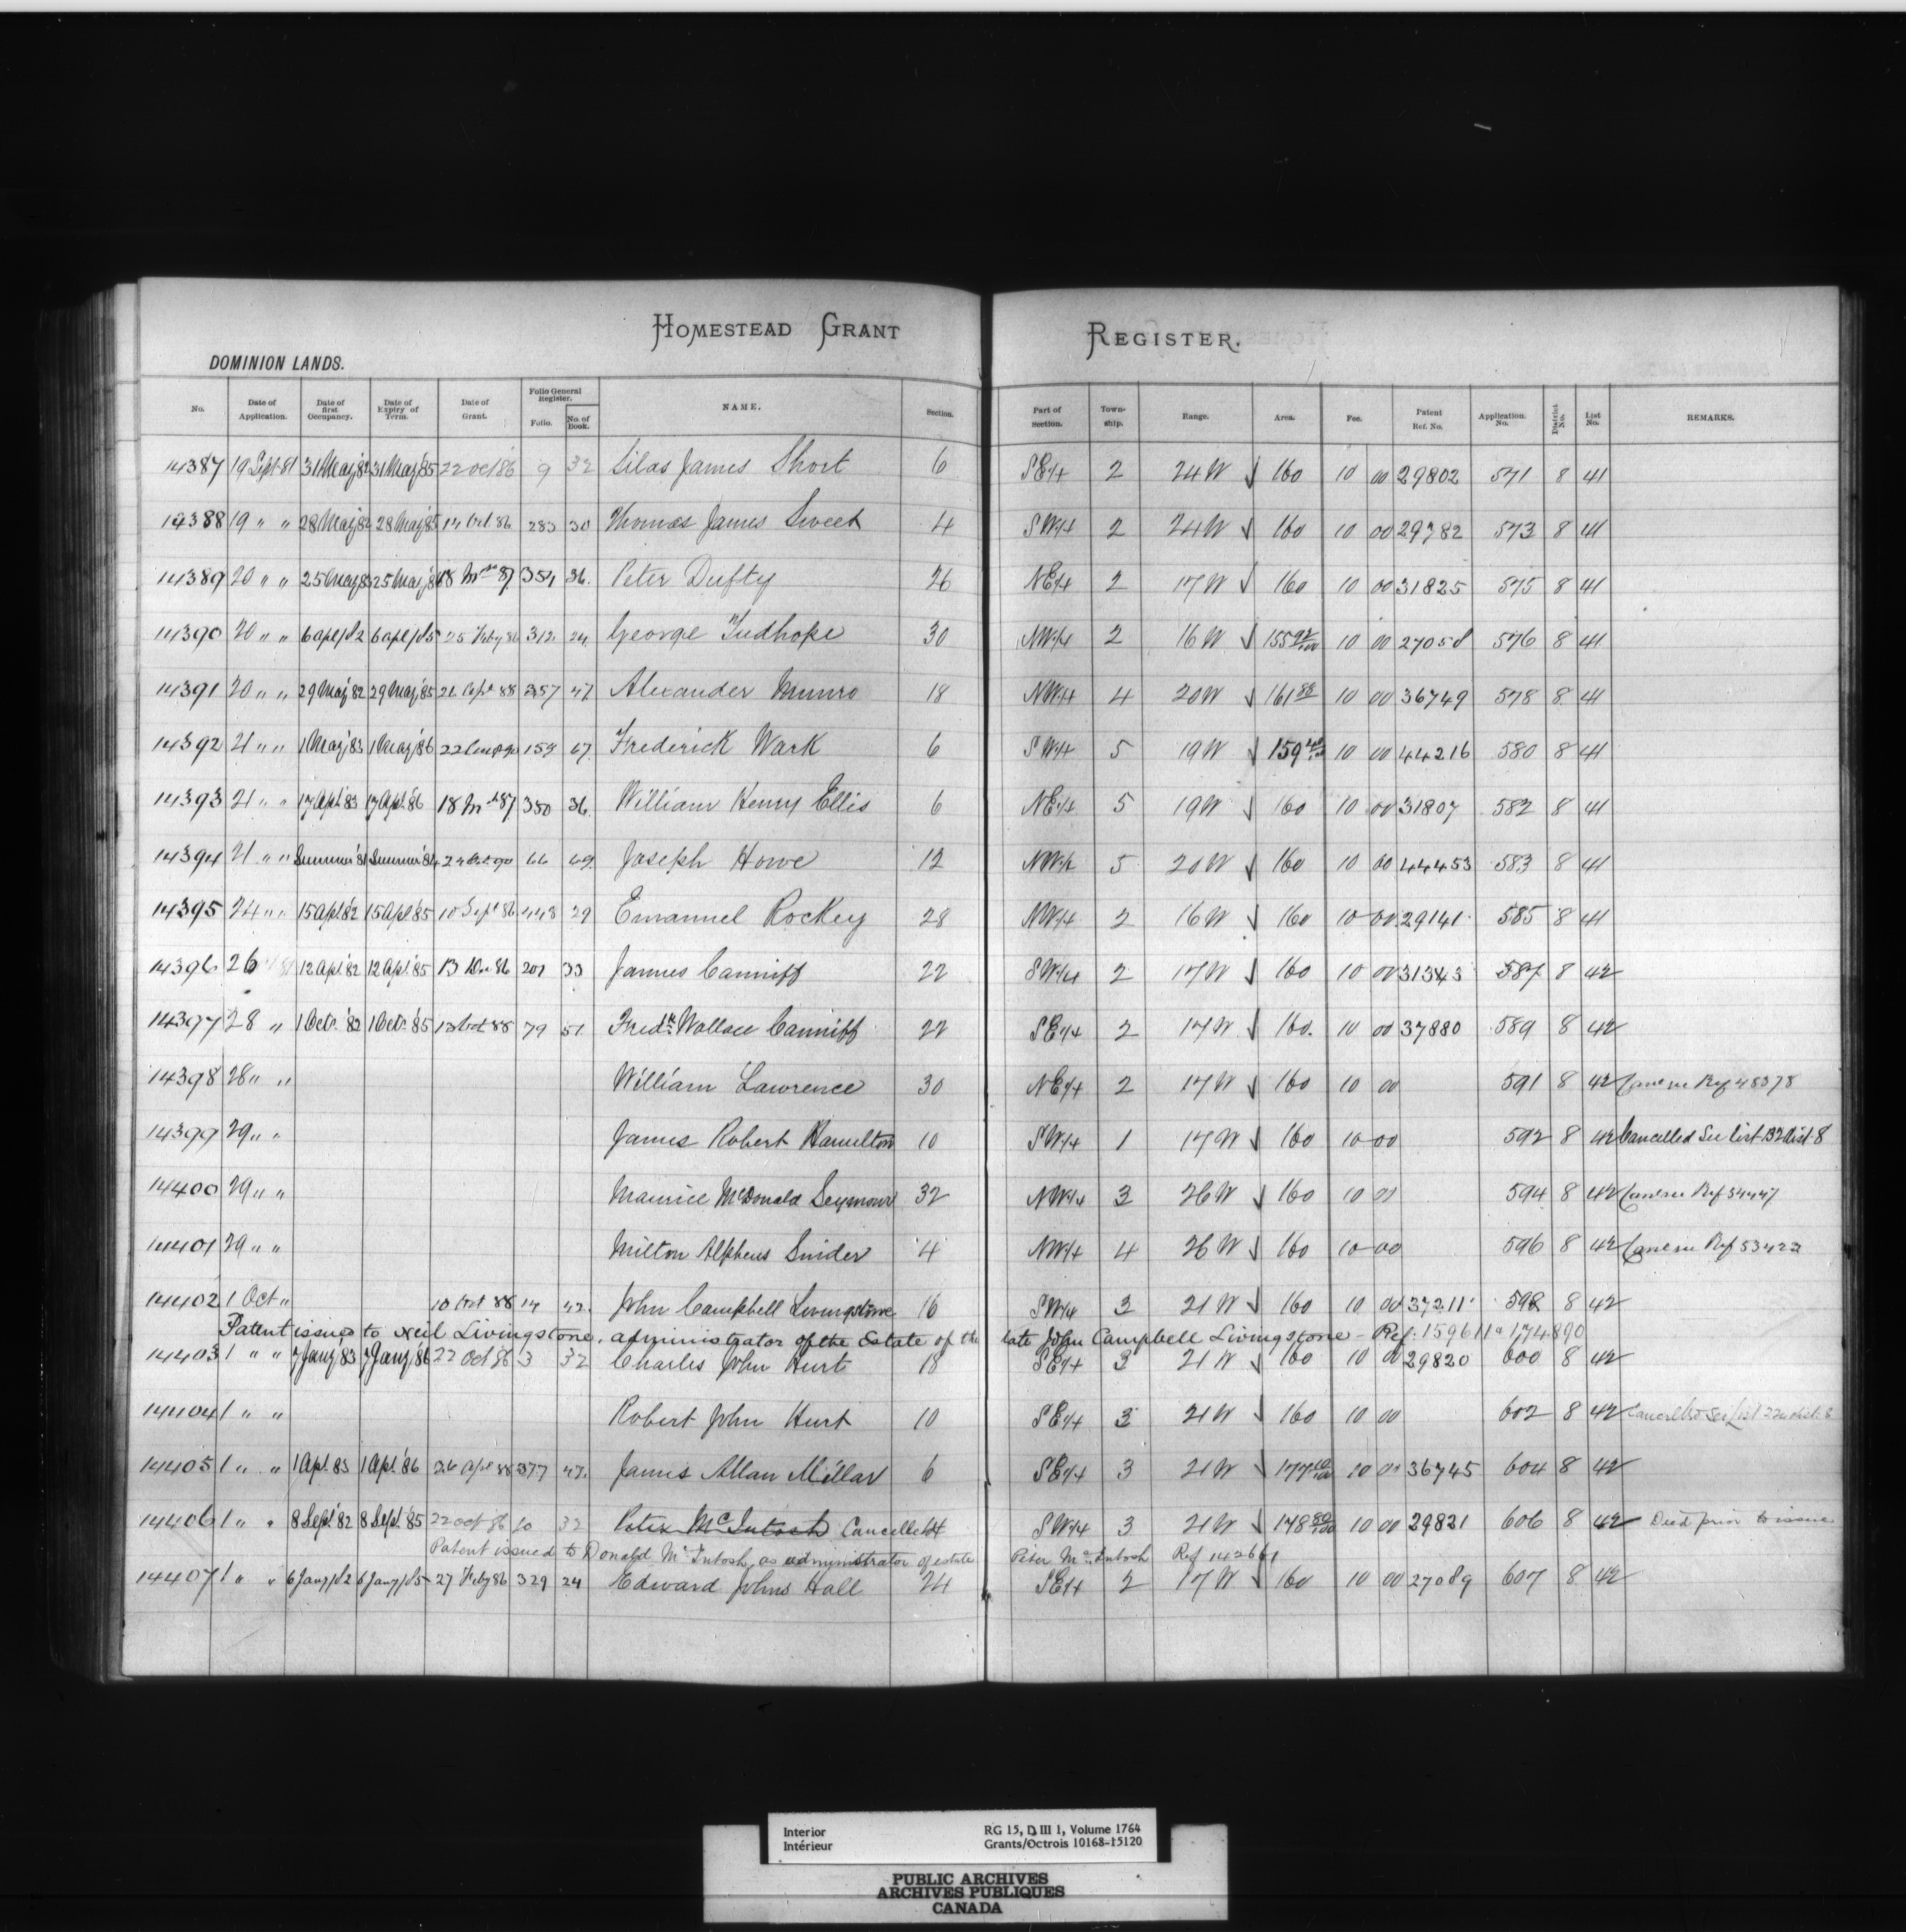 HOMESTEAD GRANT REGISTER.
DOMINION LANDS.
No. Date of Application. Date of first Occupancy. Date of Expiry of Term. Date of Grant. Folio General Register. Folio. No. of Book. NAME. Section. Part of Section. Township. Range. Area. Fee. Patent Ref. No. Application. No. District No. List No. REMARKS.
14387 19 Sept 81 31 May '82 31 May '85 22 Oct 86 9 32 Silas James Short 6 SE1/4 2 24W √ 160 10 00 29802 571 8 41
14388 19 " " 28 May 82 28 May '85 283 30 Thomas James Sweet 4 SW1/4 2 24W √ 160 10 00 29782 573 8 41
14389 20 " " 25 May 83 25 May '86 354 36. Peter Dufty 26 NE1/4 2 17W √ 160 10 00 31825 575 8 41
14390 20 " " 6 apl/82 6 apl/85 25 Feby 86 312 24 George Tudhope 30 NW1/4 2 16W √ 155 92/100 10 00 27058 576 8 41
14391 20 " " 29 May '82 29 May '85 357 47 Alexander Munro 18 NW1/4 4 20W √ 161 88 10 00 36749 578 8 41
14392 21 " " 1 May '83 1 May '86 159 67 Frederick Wark 6 SW1/4 5 19W √ 159 40/100 10 00 44216 580 8 41
14393 21 " " 17 Apl '83 17 Apl '86 350 36. William Henry Ellis 6 NE1/4 5 19W √ 160 10 00 31807 582 8 41
14394 21 " " Summer '81 Summer '84 66 69 Joseph Howe 12 NW1/4 5 20W √ 160 10 00 44453 583 8 41
14395 24 " " 15 Apl '82 15 Apl '85 10 Sept 86 448 29 Emanuel Rockey 28 NW1/4 2 16W √ 160 10 00 29141 585 8 41
14396 26 12 Apl '82 12 Apl '85 13 Dec 86 33 James Canniff 22 SW1/4 2 17W √ 160 10 00 31343 587 8 42
14397 28 " 1 Octr '82 1 Octr '85 13 Oct 88 79 51 Fredk Wallace Canniff 22 SE1/4 2 17W √ 160. 10 00 37880 589 8 42
14398 28 " " William Lawrence 30 NE1/4 2 17W √ 160 10 00 591 8 42 Ref 48378
14399 29 " " James Robert Hamilton 10 SW1/4 1 17W √ 160 10 00 592 8 42 Cancelled See list 132 Dist 8
14400 29 " " Maurice McDonald Seymour 32 NW1/4 3 26W √ 160 10 00 594 8 42 Ref 54447
14401 29 " " Milton Alpheus Snider 4 NW1/4 4 26W √ 160 10 00 596 8 42 Ref 53422
14402 1 Oct " 10 Oct 88 14 42. John Campbell Livingstone 16 SW1/4 3 21W √ 160 10 00 37211 598 8 42
Patent issued to Neil Livingstone, administrator of the Estate of the late John Campbell Livingstone - Ref: 159611 174890
14403 1 " " 7 Jany '83 7 Jany '86 22 Oct 86 3 32 Charles John Hurt 18 SE1/4 3 21W √ 160 10 00 29820 600 8 42
14404 1 " " Robert John Hurt 10 SE1/4 3 21W √ 160 10 00 602 8 42 Cancelled See List Dist. 8
14405 1 " " 1 Apl 83 1 Apl '86 26 Apl 88 377 47. James Allan Millar 6 SE1/4 3 21W √ 177 10/100 10 00 36745 604 8 42
14406 1 " " 8 Sept '82 8 Sept '85 22 Oct 86 10 32 Peter McIntosh Cancelled 4 SW1/4 3 21W √ 148 80/100 10 00 29821 606 8 42 Died prior to issue
Patent issued to Donald McIntosh, as administrator of estate Peter McIntosh Ref 142661
14407 1 " " 6 Jany/82 6 Jany/85 27 Feby 86 329 24 Edward Johns Hall 24 SE1/4 2 17W √ 160 10 00 27089 607 8 42
Interior
Intérieur
RG 15, D III 1, Volume 1764
Grants/Octrois 10168-15120
PUBLIC ARCHIVES
ARCHIVES PUBLIQUES
CANADA